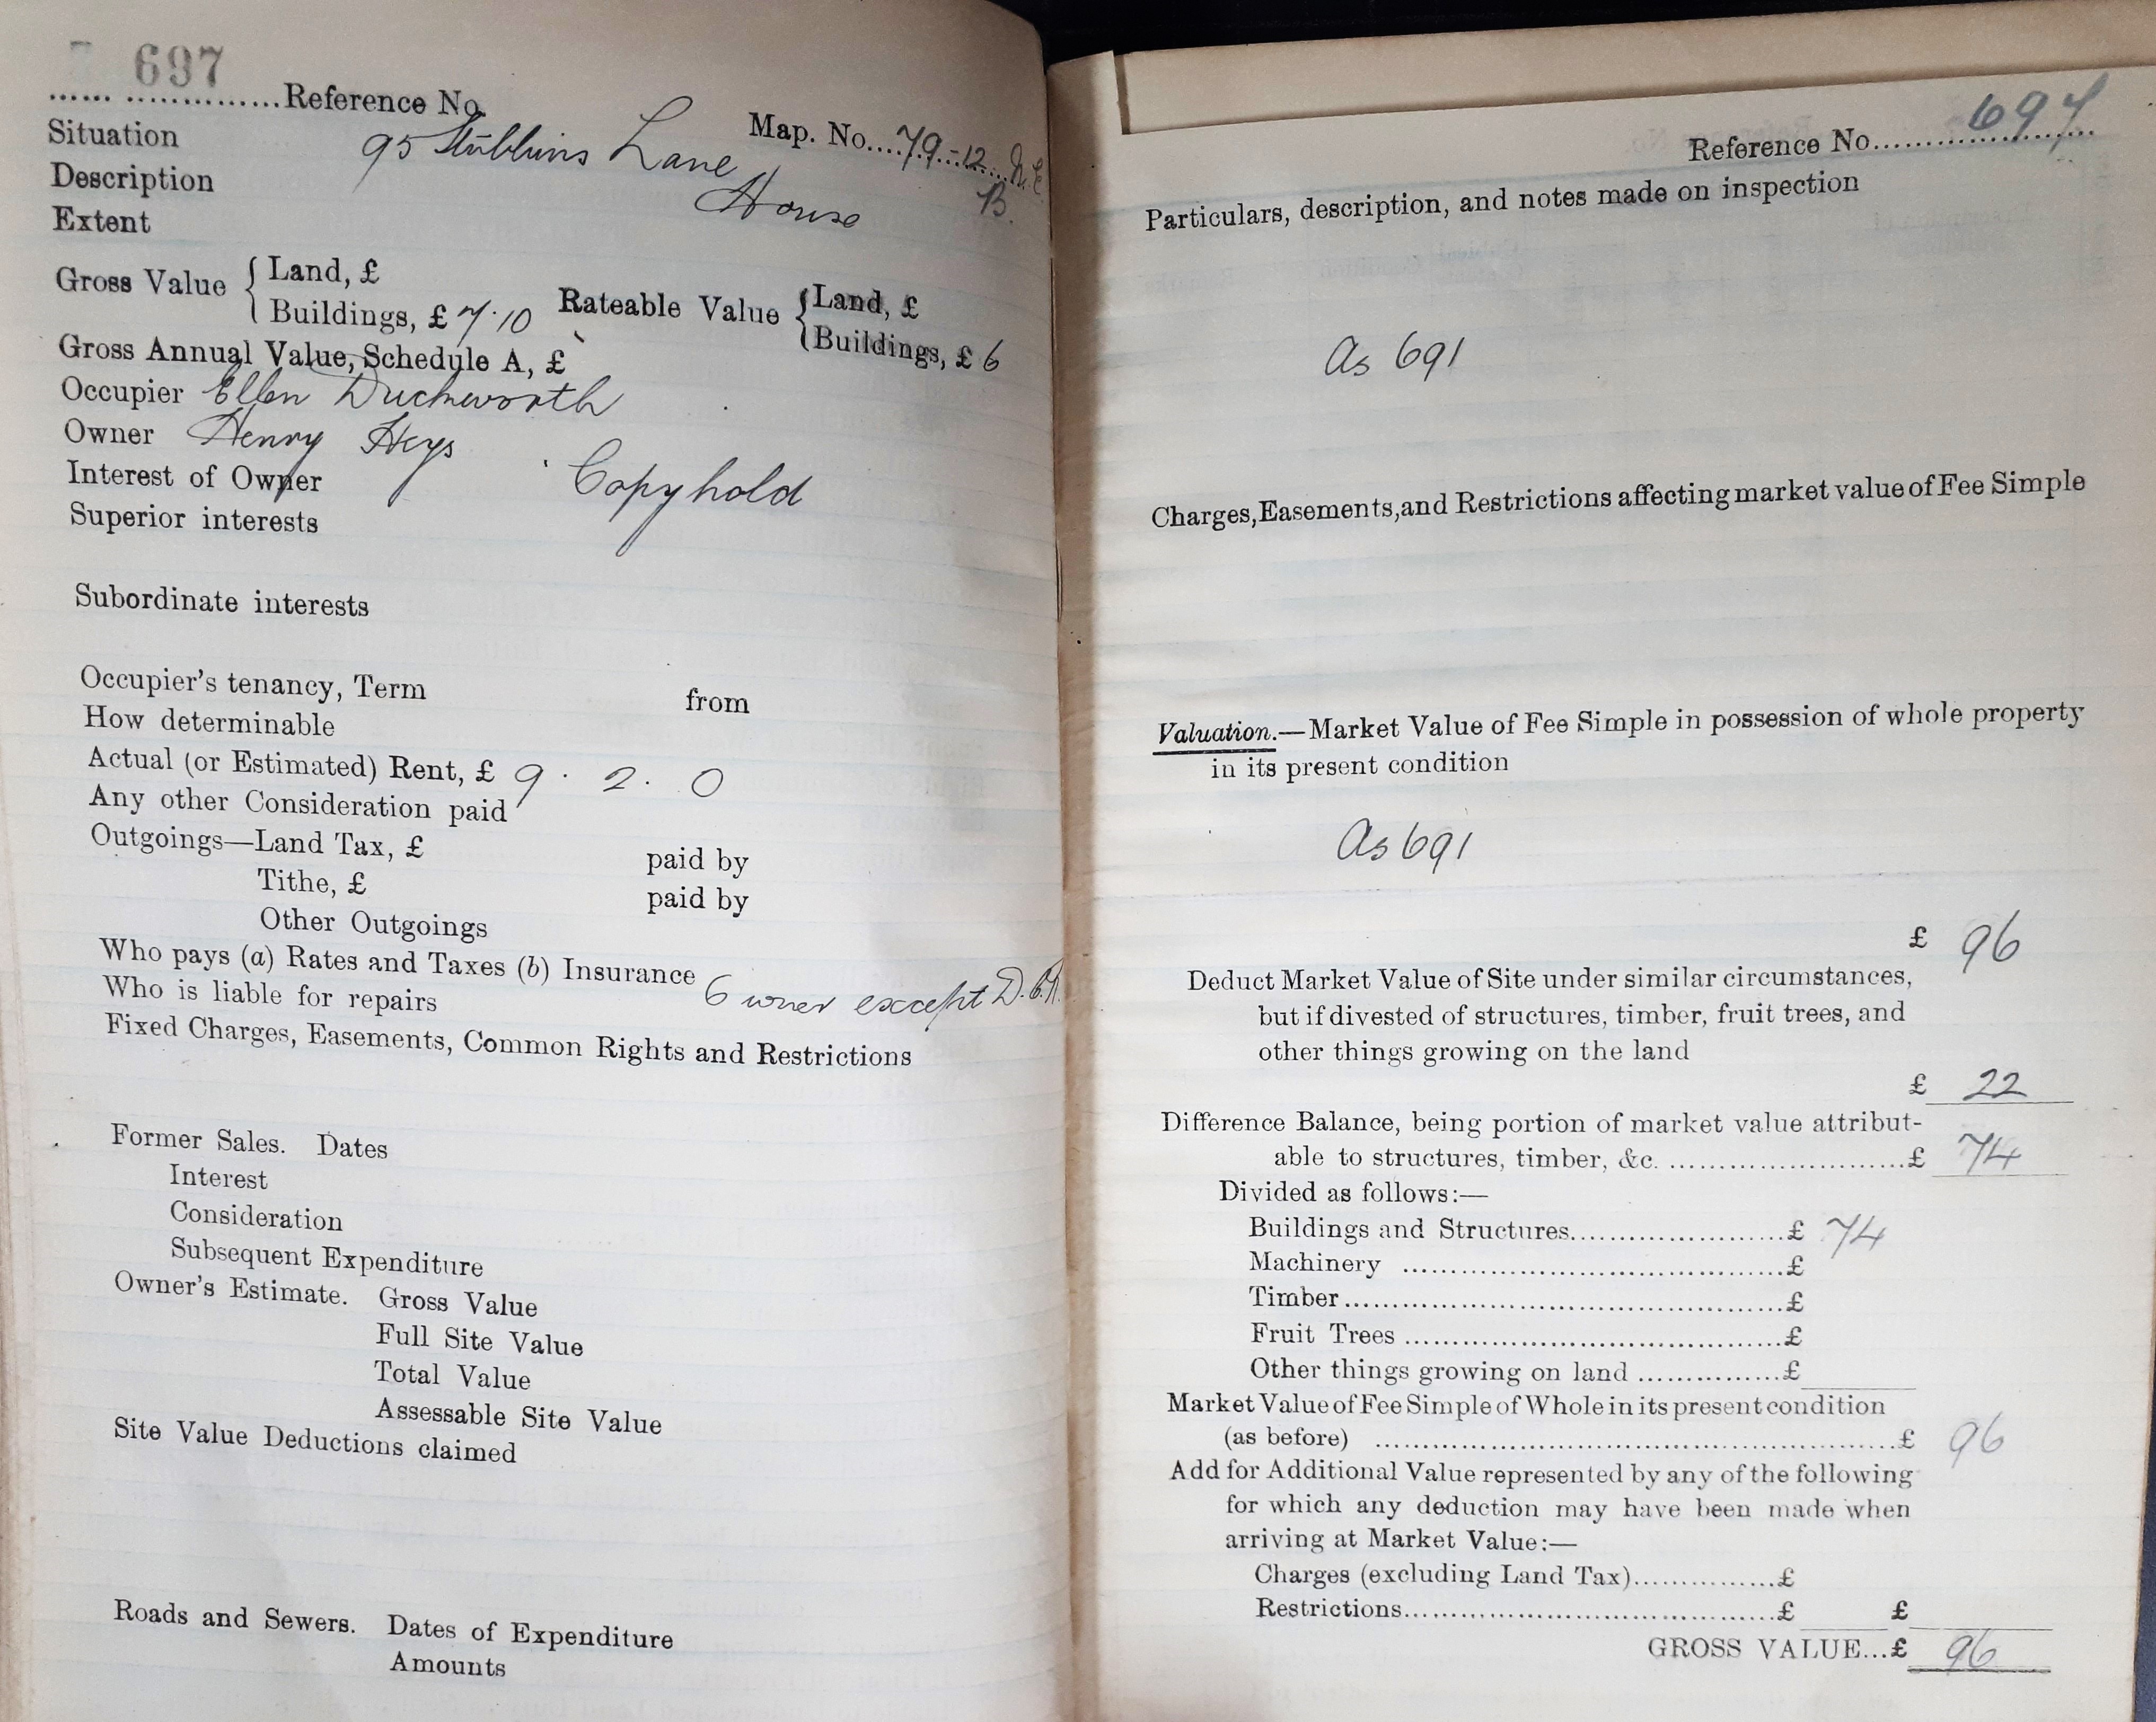 697
Reference No.
Map. No. 79-12 N.E.
B.
Situation 95 Stubbins Lane
Description House
Extent
Gross Value { Land, £
Buildings, £ 7.10
Rateable Value { Land, £
Buildings, £ 6
Gross Annual Value, Schedule A, £
Occupier Ellen Duckworth
Owner Henry Heys
Interest of Owner Copyhold
Superior interests
Subordinate interests
Occupier's tenancy, Term from
How determinable
Actual (or Estimated) Rent, £ 9. 2. 0
Any other Consideration paid
Outgoings—Land Tax, £ paid by
Tithe, £ paid by
Other Outgoings
Who pays (a) Rates and Taxes (b) Insurance
Who is liable for repairs Owner except
Fixed Charges, Easements, Common Rights and Restrictions
Former Sales. Dates
Interest
Consideration
Subsequent Expenditure
Owner's Estimate. Gross Value
Full Site Value
Total Value
Assessable Site Value
Site Value Deductions claimed
Roads and Sewers. Dates of Expenditure
Amounts
Reference No. 697
Particulars, description, and notes made on inspection
As 691
Charges, Easements, and Restrictions affecting market value of Fee Simple
Valuation.—Market Value of Fee Simple in possession of whole property
in its present condition
As 691
£ 96
Deduct Market Value of Site under similar circumstances,
but if divested of structures, timber, fruit trees, and
other things growing on the land
£ 22
Difference Balance, being portion of market value attribut-
able to structures, timber, &c. £ 74
Divided as follows:—
Buildings and Structures £ 74
Machinery £
Timber £
Fruit Trees £
Other things growing on land £
Market Value of Fee Simple of Whole in its present condition
(as before) £ 96
Add for Additional Value represented by any of the following
for which any deduction may have been made when
arriving at Market Value:—
Charges (excluding Land Tax) £
Restrictions £ £
GROSS VALUE...£ 96